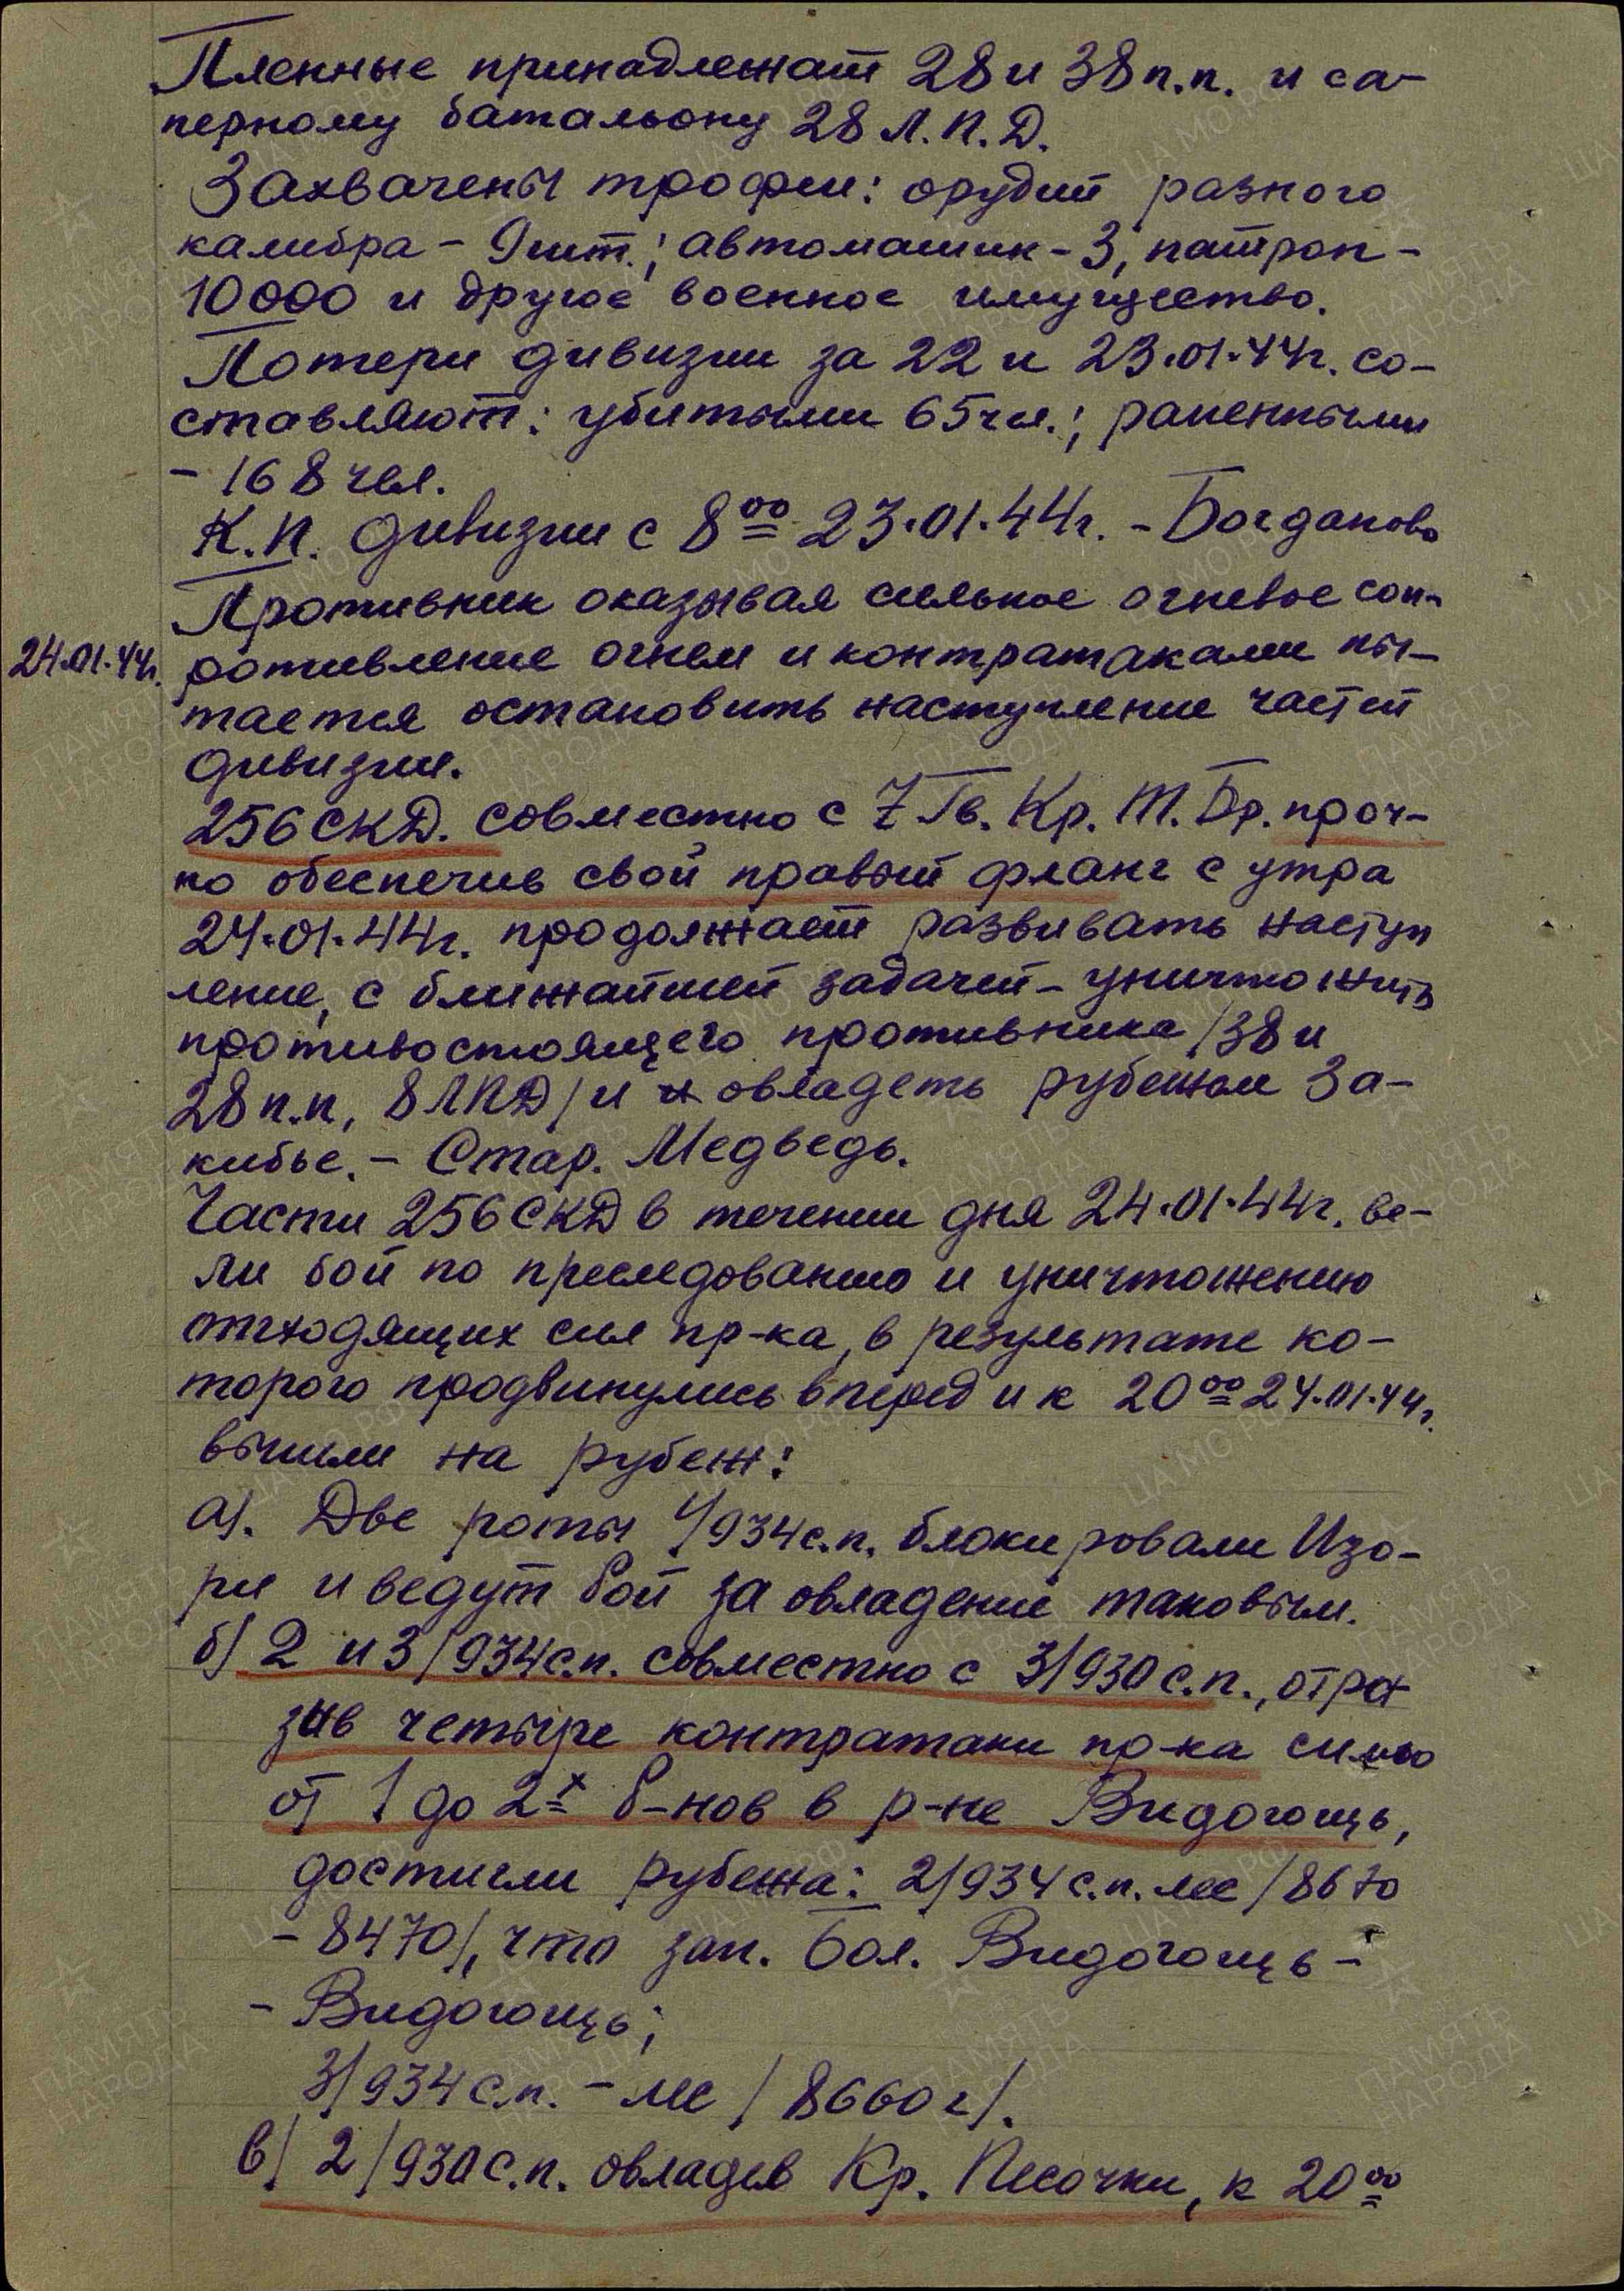 Пленные принадлежат 28 и 38 п.п. и са-
перному батальону 28 Л.П.Д.
Захвачены трофеи: орудий разного
калибра - 9 шт.; автомашин - 3, патрон -
10000 и другое военное имущество.
Потери дивизии за 22 и 23.01.44г. со-
ставляют: убитыми 65 чел.; раненными
- 168 чел.
К.П. дивизии с 8⁰⁰ 23.01.44г. - Богданово
Противник оказывая сильное огневое соп-
24.01.44г. ротивление огнем и контратаками пы-
тается остановить наступление частей
дивизии.
256 СКД. совместно с 7 Гв. Кр. Т. Бр. проч-
но обеспечив свой правый фланг с утра
24.01.44г. продолжает развивать наступ
ление, с ближайшей задачей - уничтожить
противостоящего противника /38 и
28 п.п, 8 ЛПД/ и овладеть рубежом За-
кибье. - Стар. Медведь.
Части 256 СКД в течении дня 24.01.44г. ве-
ли бой по преследованию и уничтожению
отходящих сил пр-ка, в результате ко-
торого продвинулись вперед и к 20⁰⁰ 24.01.44г.
вышли на рубеж:
а). Две роты 1/934 с.п. блокировали Изо-
ри и ведут бой за овладение таковым.
б/ 2 и 3/934 с.п. совместно с 3/930 с.п., отра
зив четыре контратаки пр-ка силою
от 1 до 2ˣ б-нов в р-не Видогощь,
достигли рубежа: 2/934 с.п. лес /8670
- 8470/, что зап. Бол. Видогощь -
- Видогощь;
3/934 с.п. - лес /8660 г/.
в/ 2/930 с.п. овладев Кр. Песочки, к 20⁰⁰
ПАМЯТЬ НАРОДА
ЦА МО РФ